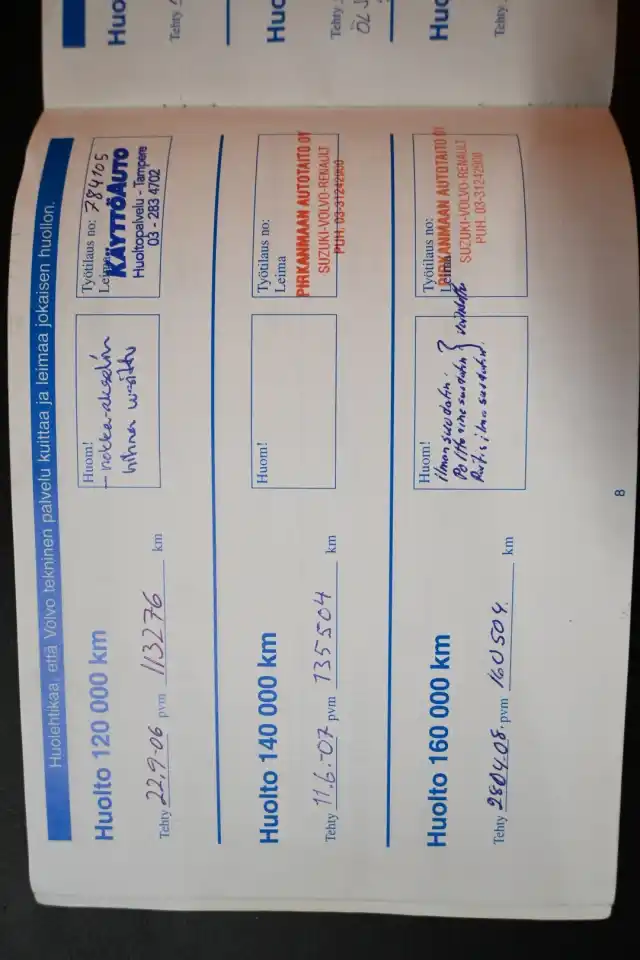 Huolehtikaa, että Volvo tekninen palvelu kuittaa ja leimaa jokaisen huollon.
Huolto 120 000 km
Tehty 22.9-06 pvm 113276 km
Huom!
- nokka-akselin
hihna vaihdettu
Työtilaus no: 784105
Leima
KÄYTTÖAUTO
Huoltopalvelu - Tampere
03 - 283 4702
Huolto 140 000 km
Tehty 11.6.-07 pvm 135504 km
Huom!
Työtilaus no:
Leima
PIRKANMAAN AUTOTAITO OY
SUZUKI-VOLVO-RENAULT
PUH. 03-31242800
Huolto 160 000 km
Tehty 2804.08. pvm 160504. km
Huom!
ilmansuodatin.
Polttoainesuodatin } vaihdettu
Raitisilmasuodatin.
Työtilaus no:
Leima
PIRKANMAAN AUTOTAITO OY
SUZUKI-VOLVO-RENAULT
PUH. 03-31242800
8
Huo
Tehty
Huo
Tehty
Huo
Tehty